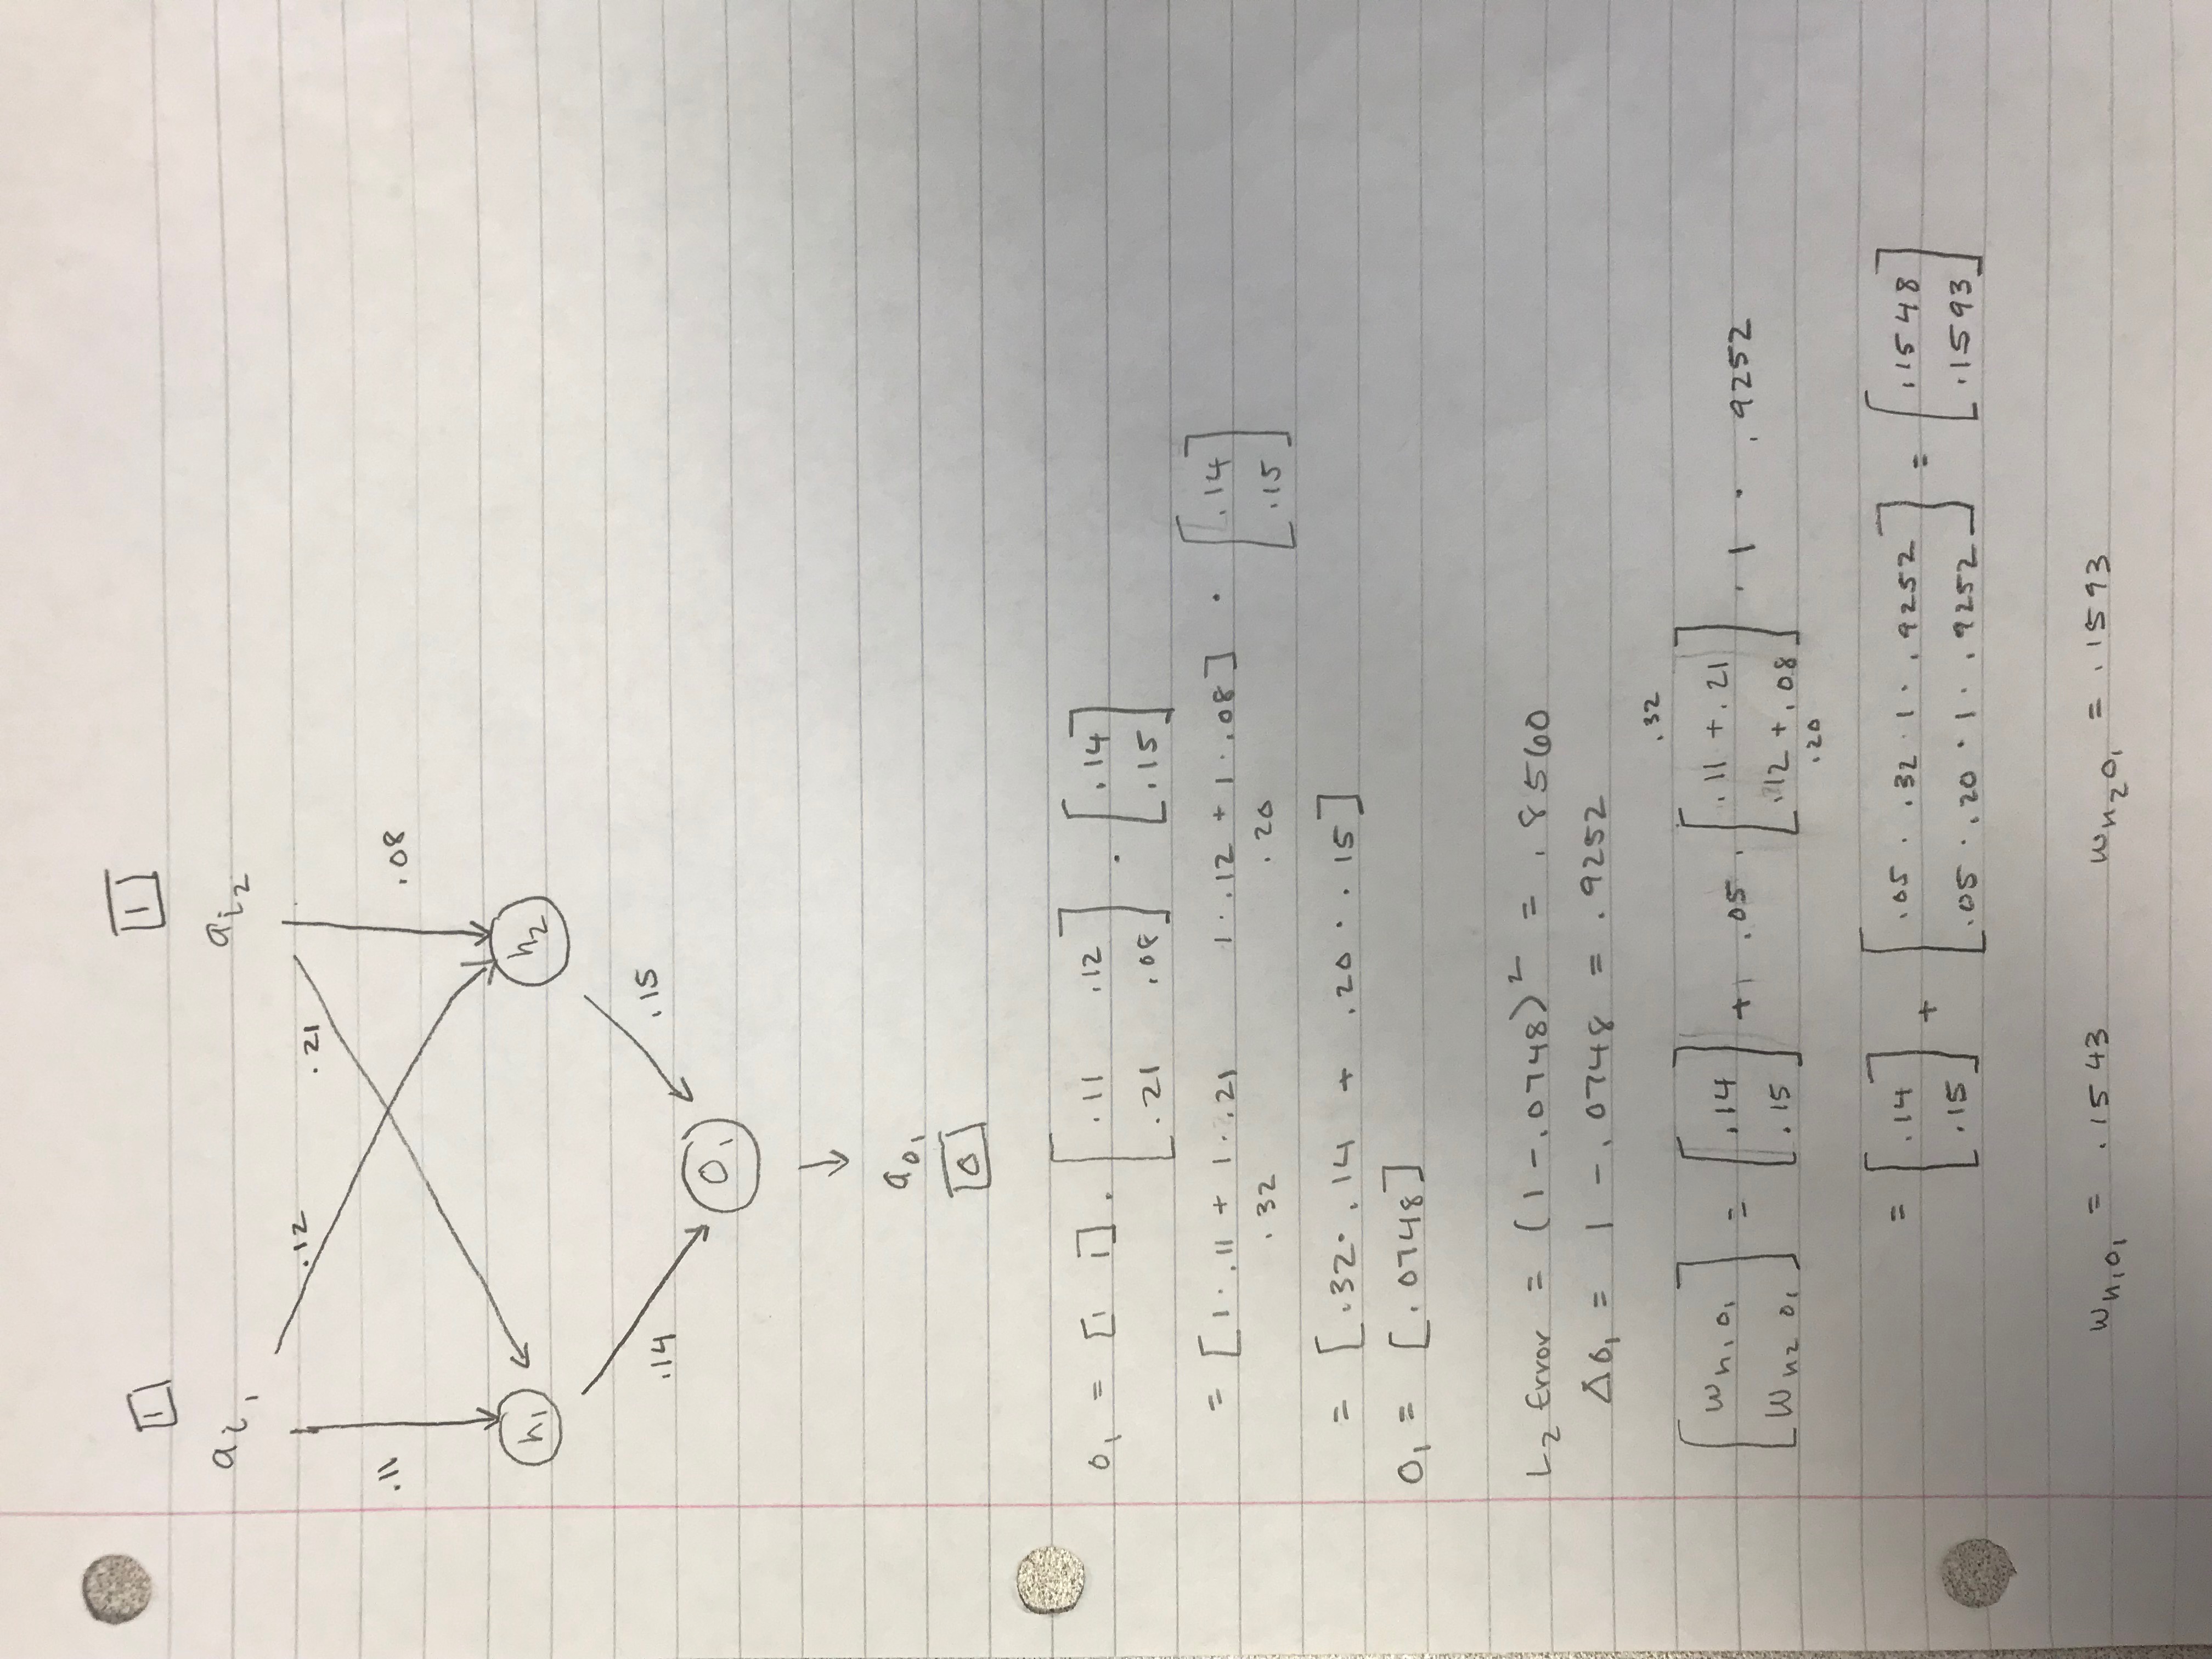 1 1
a i₁ a i₂
.12 .21
.11 .08
h₁ h₂
.14 .15
O₁
a o₁
0
o₁ = [1 1] . [.11 .12
.21 .08] . [.14
.15]
= [1 · .11 + 1 · .21 1 · .12 + 1 · .08] · [.14
.15]
.32 .20
= [.32 · .14 + .20 · .15]
O₁ = [.0748]
L₂ Error = (1 - .0748)² = .8560
Δo₁ = 1 - .0748 = .9252
.32
[w h₁ o₁
w h₂ o₁] = [.14
.15] + .05 . [.11 + .21
.12 + .08] · 1 · .9252
.20
= [.14
.15] + [.05 · .32 · 1 · .9252
.05 · .20 · 1 · .9252] = [.1548
.1593]
w h₁ o₁ = .1543 w h₂ o₁ = .1593